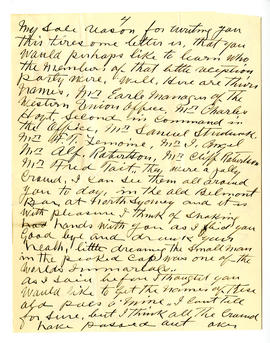 4
My sole reason for writing you
this tiresome letter is, that you
would perhaps like to learn who
the members of that little reception
party were, well, Here are their
names, Mr Earle Manager of the
Western Union Office, Mr Charles
Hoyt, Second in Command in
the Office, Mr Samuel
Mr Lemoine, Mr J. Angel
Mr Alf. Robertson, Mr Cliff Robertson
Mr Fred Tait, They were a jolly
Crowd, I can see them all around
you to day, in the old Belmont
Bar, at North Sydney and it is
with pleasure I think of shaking
hands with you as I bid you
Good bye and drank your
health, little dreaming the small man
in the peaked Cap was one of the
worlds Immortals.
as I said before I thought you
would like to get the names of these
old pals o' mine. I cant tell
for sure, but I think all the Crowd
have passed out